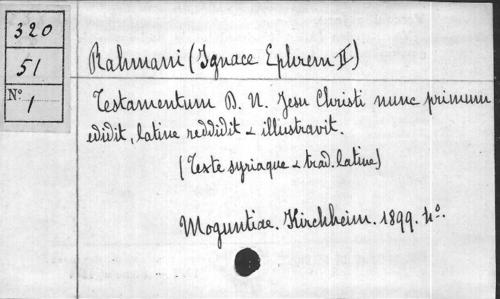 320
51
N° 1
Rahmani (Ignace Ephrem II)
Testamentum D. N. Jesu Christi nunc primum
edidit, latine reddidit & illustravit.
(Texte syriaque & trad. latine)
Moguntiae. Kirchheim. 1899. 4°.